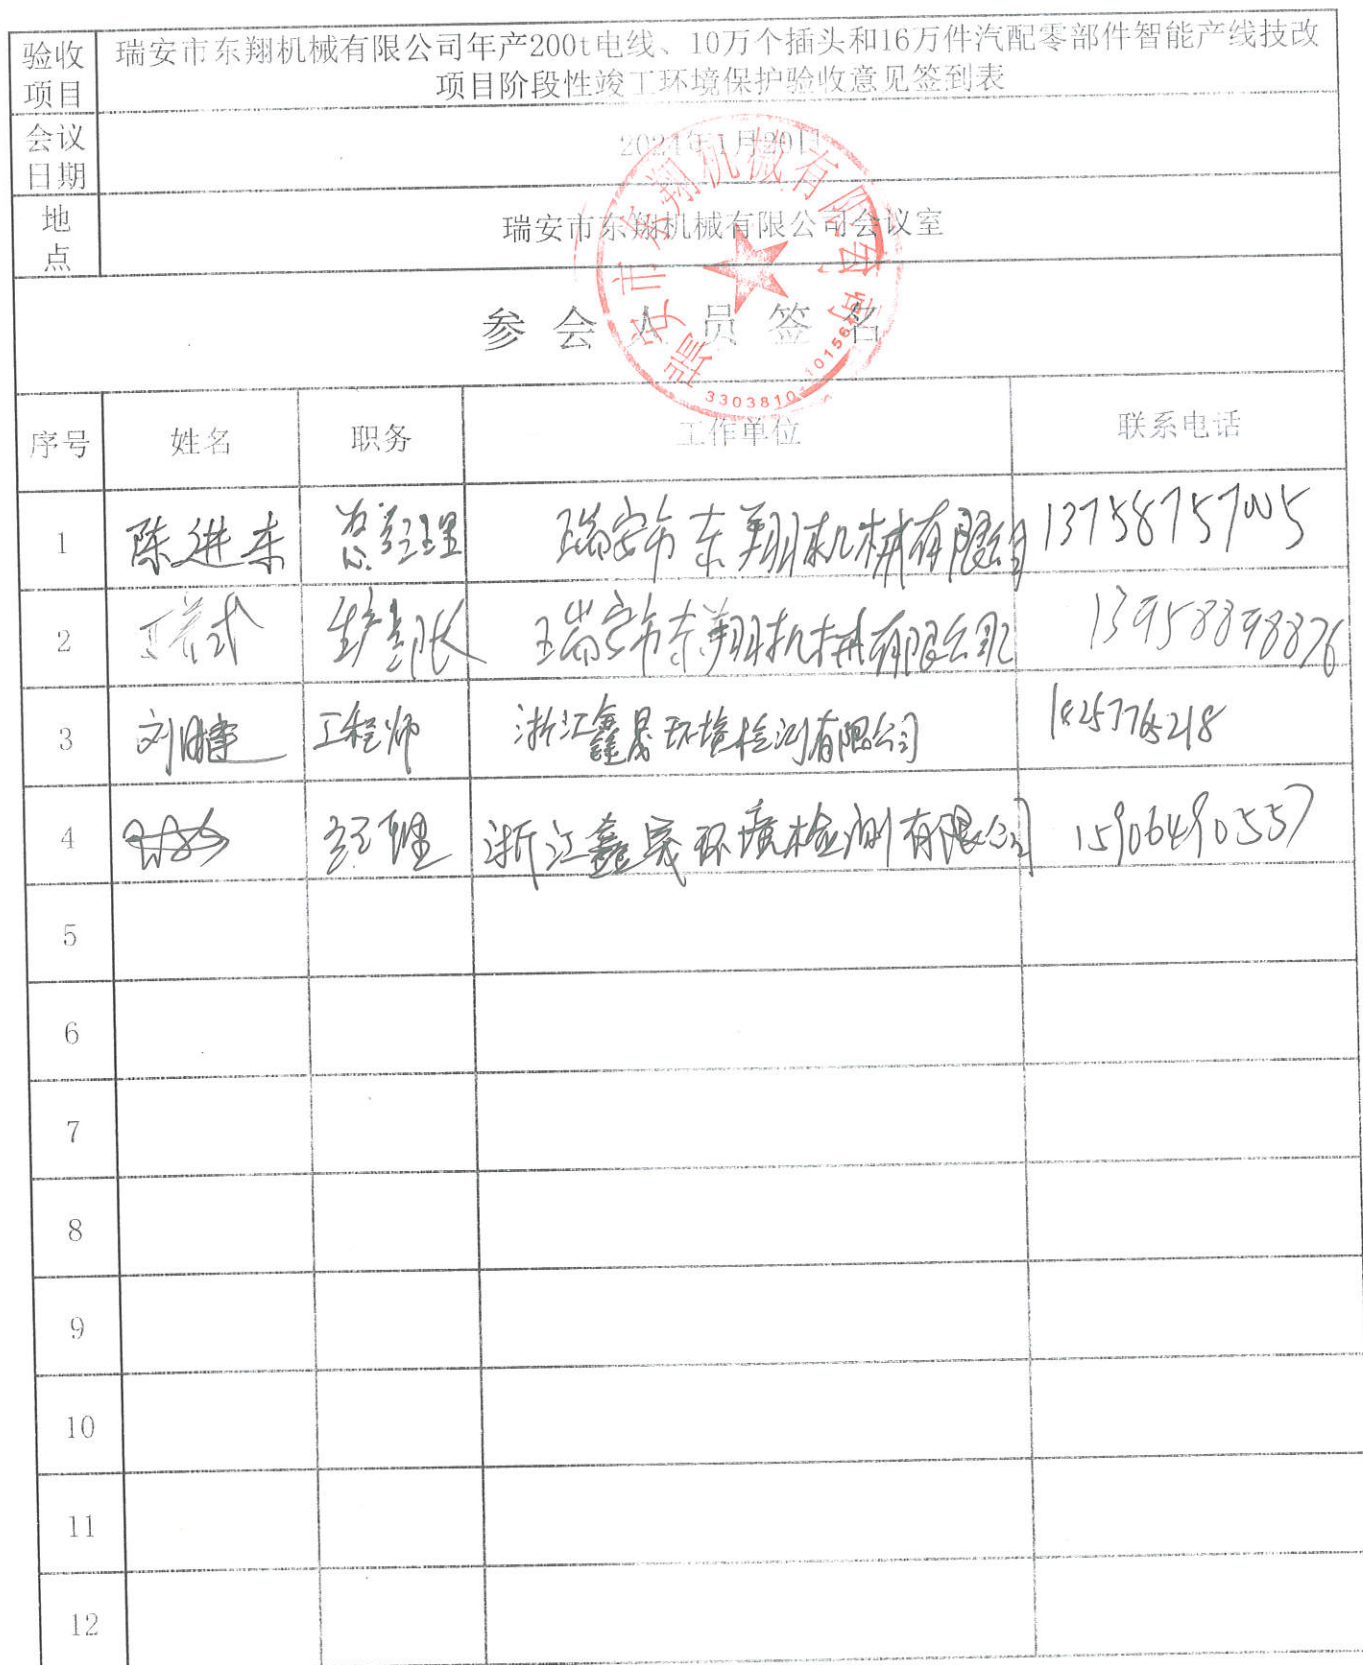 验收项目
瑞安市东翔机械有限公司年产200t电线、10万个插头和16万件汽配零部件智能产线技改
项目阶段性竣工环境保护验收意见签到表
会议日期
2024年1月20日
地点
瑞安市东翔机械有限公司会议室
瑞安市东翔机械有限公司
参会人员签名
序号 姓名 职务 工作单位 联系电话
1 陈进东 总经理 瑞安市东翔机械有限公司 13758757005
2 生产部长 瑞安市东翔机械有限公司 13958898876
3 工程师 浙江鑫晟环境检测有限公司
4 经理 浙江鑫晟环境检测有限公司 15906490557
5
6
7
8
9
10
11
12